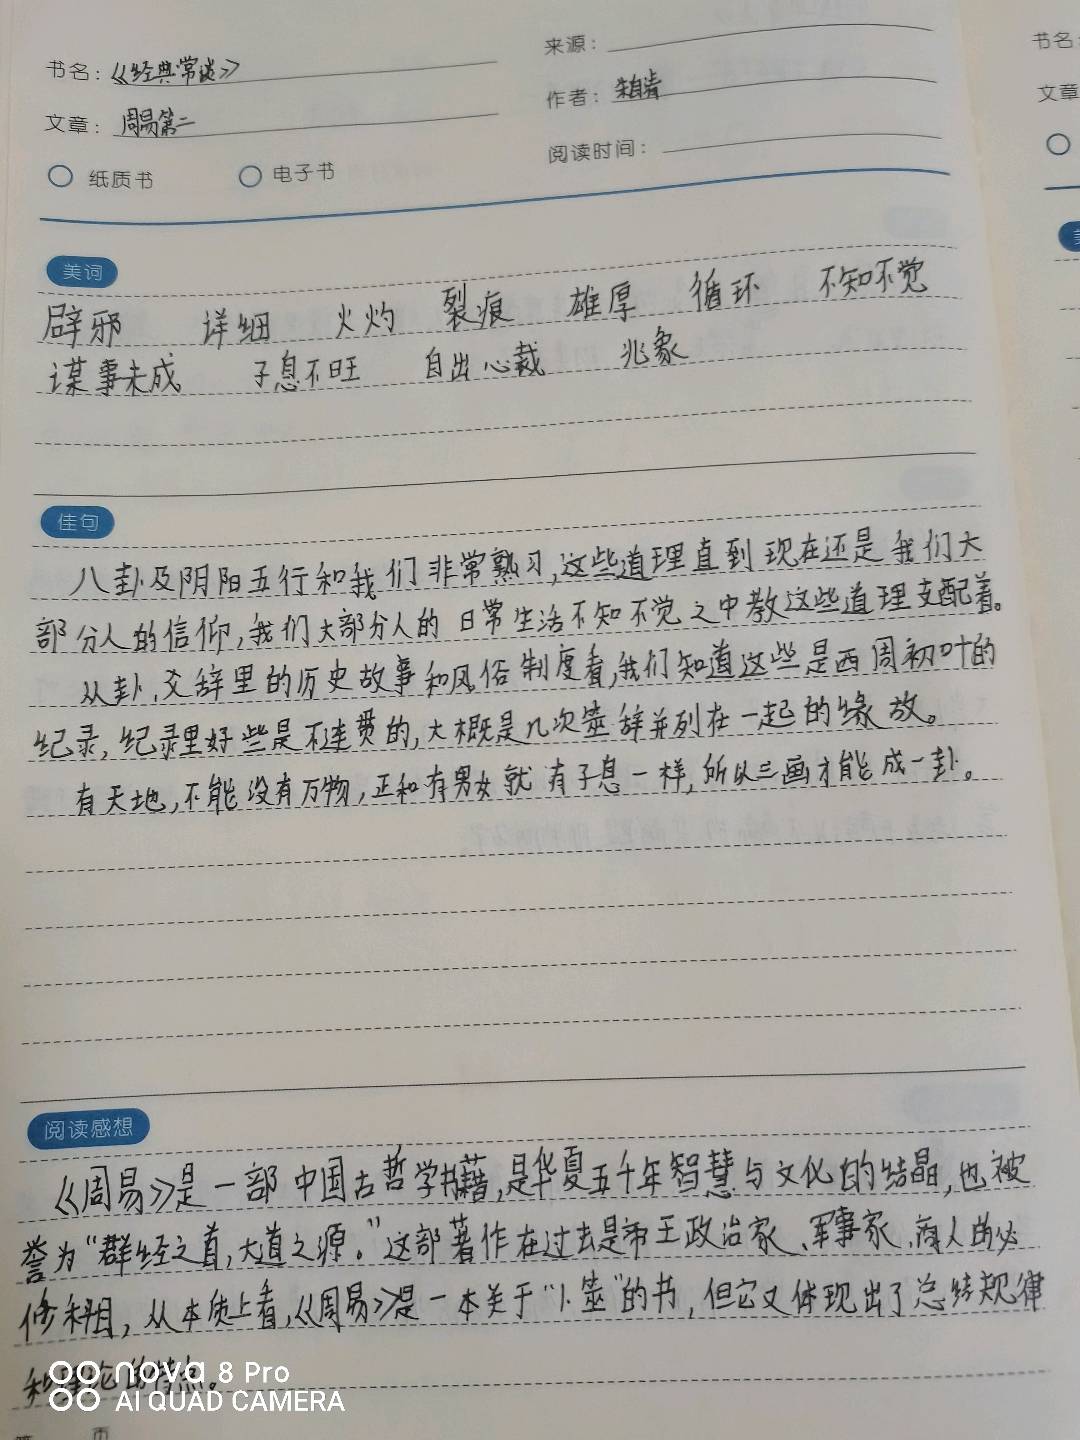 书名：《经典常谈》
来源：
文章：周易第二
作者：朱自清
纸质书
电子书
阅读时间：
书名：
文章
美词
辟邪 详细 火灼 裂痕 雄厚 循环 不知不觉
谋事未成 子息不旺 自出心裁 兆象
佳句
八卦及阴阳五行和我们非常熟习,这些道理直到现在还是我们大
部分人的信仰,我们大部分人的日常生活不知不觉之中教这些道理支配着。
从卦、爻辞里的历史故事和风俗制度看,我们知道这些是西周初叶的
纪录,纪录里好些是不连贯的,大概是几次筮辞并列在一起的缘故。
有天地,不能没有万物,正和有男女就有子息一样,所以三画才能成一卦。
阅读感想
《周易》是一部中国古哲学书籍,是华夏五千年智慧与文化的结晶,也被
誉为“群经之首,大道之源。”这部著作在过去是帝王政治家、军事家、商人的必
修科目,从本质上看,《周易》是一本关于“卜筮”的书,但它又体现出了总结规律
和理论的特点。
nova 8 Pro
AI QUAD CAMERA
第 页